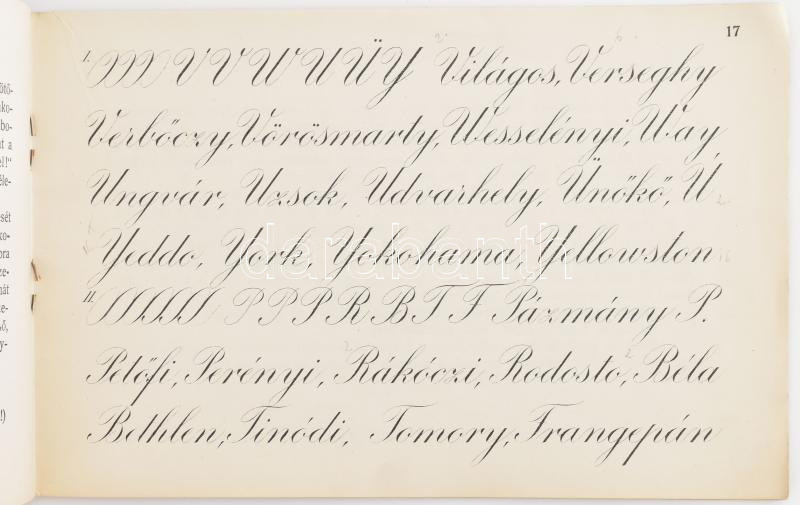 17
I. V V W U Ü Y Világos, Verseghy
Verbőczy, Vörösmarty, Wesselényi, Way
Ungvár, Uzsok, Udvarhely, Ünőkő, Ú
Yeddo, York, Yokohama, Yellowston
II. P P P R B T F Pázmány P.
Petőfi, Perényi, Rákóczi, Rodosto, Béla
Bethlen, Tinódi, Tomory, Frangepán
darabanth